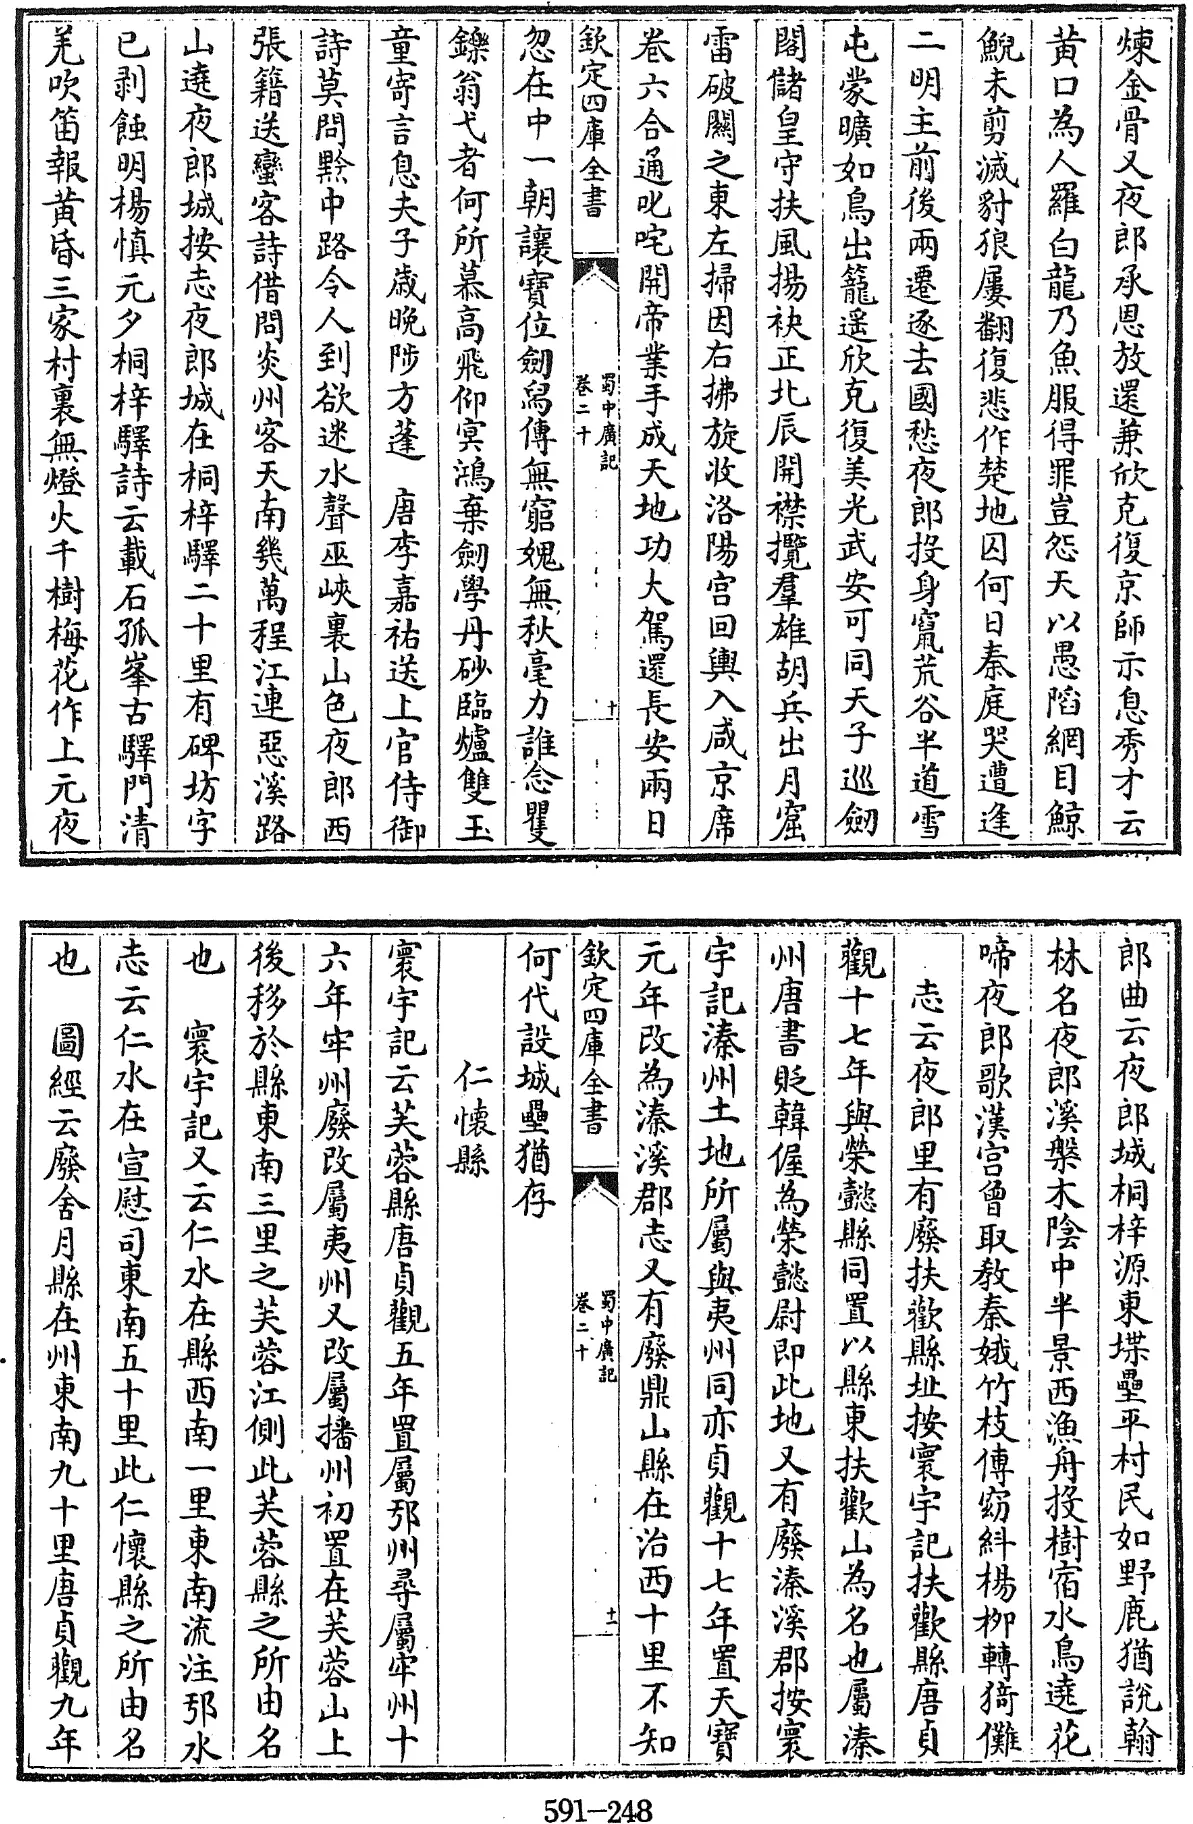 煉金骨又夜郎承恩放還兼欣克復京師示息秀才云
黃口為人羅白龍乃魚服得罪豈怨天以愚陷網目鯨
鯢未剪滅豺狼屢翻復悲作楚地囚何日秦庭哭遭逢
二明主前後兩遷逐去國愁夜郎投身竄荒谷半道雪
屯蒙曠如鳥出籠遥欣克復美光武安可同天子巡劒
閣儲皇守扶風揚袂正北辰開襟攬羣雄胡兵出月窟
雷破關之東左掃因右拂旋收洛陽宫回輿入咸京席
卷六合通叱咤開帝業手成天地功大駕還長安兩日
欽定四庫全書
蜀中廣記
卷二十
十
忽在中一朝讓寶位劒舄傳無窮媿無秋毫力誰念矍
鑠翁弋者何所慕高飛仰冥鴻棄劒學丹砂臨爐雙玉
童寄言息夫子歲晩陟方蓬　唐李嘉祐送上官侍御
詩莫問黔中路令人到欲迷水聲巫峽裏山色夜郎西
張籍送蠻客詩借問炎州客天南幾萬程江連惡溪路
山遶夜郎城按志夜郎城在桐梓驛二十里有碑坊字
已剥蝕明楊慎元夕桐梓驛詩云載石孤峯古驛門清
羌吹笛報黃昏三家村裏無燈火千樹梅花作上元夜
郎曲云夜郎城桐梓源東堞壘平村民如野鹿猶説翰
林名夜郎溪槃木陰中半景西漁舟投樹宿水鳥遶花
啼夜郎歌漢宫曾取教秦娥竹枝傳窈糾楊栁轉猗儺
志云夜郎里有廢扶歡縣址按寰宇記扶歡縣唐貞
觀十七年與榮懿縣同置以縣東扶歡山為名也屬溱
州唐書貶韓偓為榮懿尉即此地又有廢溱溪郡按寰
宇記溱州土地所屬與夷州同亦貞觀十七年置天寶
元年改為溱溪郡志又有廢鼎山縣在治西十里不知
欽定四庫全書
蜀中廣記
卷二十
十一
何代設城壘猶存
仁懷縣
寰宇記云芙蓉縣唐貞觀五年置屬鄅州尋屬牢州十
六年牢州廢改屬夷州又改屬播州初置在芙蓉山上
後移於縣東南三里之芙蓉江側此芙蓉縣之所由名
也　寰宇記又云仁水在縣西南一里東南流注鄅水
志云仁水在宣慰司東南五十里此仁懷縣之所由名
也　圖經云廢舍月縣在州東南九十里唐貞觀九年
591-248